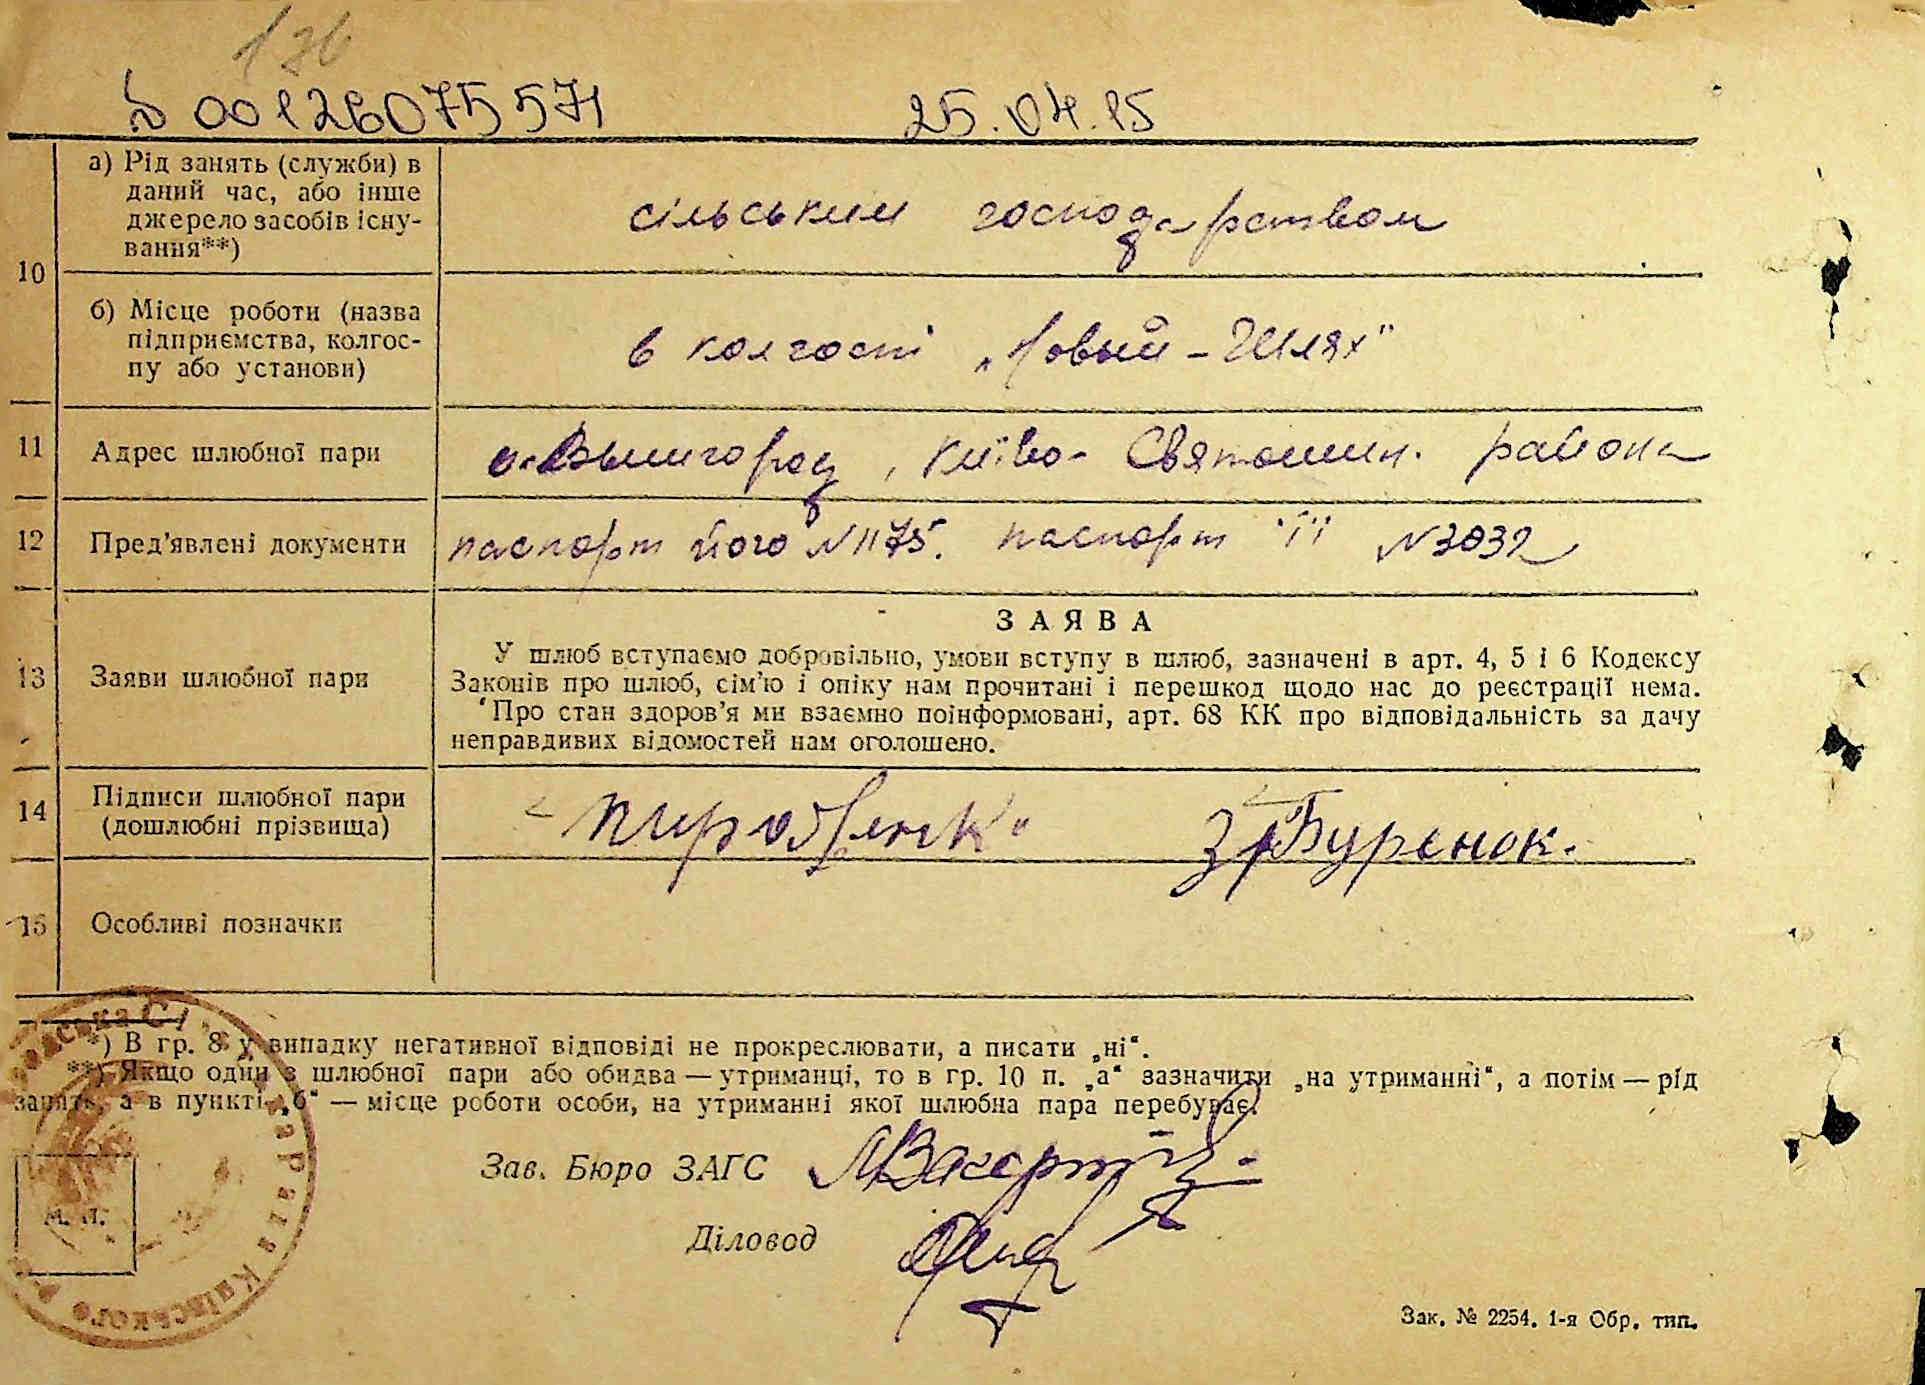 136
00126075571 25.04.15
10
а) Рід занять (служби) в
даний час, або інше
джерело засобів існу-
вання**)
сільським господарством
б) Місце роботи (назва
підприємства, колгос-
пу або установи)
в колгоспі „Новый-Шлях"
11 Адрес шлюбної пари
с. Вышгород, Київо-Святошин. района
12 Пред'явлені документи
паспорт його №1175. паспорт її №3032
13 Заяви шлюбної пари
ЗАЯВА
У шлюб вступаємо добровільно, умови вступу в шлюб, зазначені в арт. 4, 5 і 6 Кодексу
Законів про шлюб, сім'ю і опіку нам прочитані і перешкод щодо нас до реєстрації нема.
Про стан здоров'я ми взаємно поінформовані, арт. 68 КК про відповідальність за дачу
неправдивих відомостей нам оголошено.
14 Підписи шлюбної пари
(дошлюбні прізвища)
Буренок.
15 Особливі позначки
*) В гр. 8 у випадку негативної відповіді не прокреслювати, а писати „ні“.
**) Якщо один з шлюбної пари або обидва — утриманці, то в гр. 10 п. „а“ зазначити „на утриманні“, а потім — рід
занять, а в пункті „б“ — місце роботи особи, на утриманні якої шлюбна пара перебуває.
Зав. Бюро ЗАГС
Діловод
М. П.
Київського
Зак. № 2254. 1-я Обр. тип.